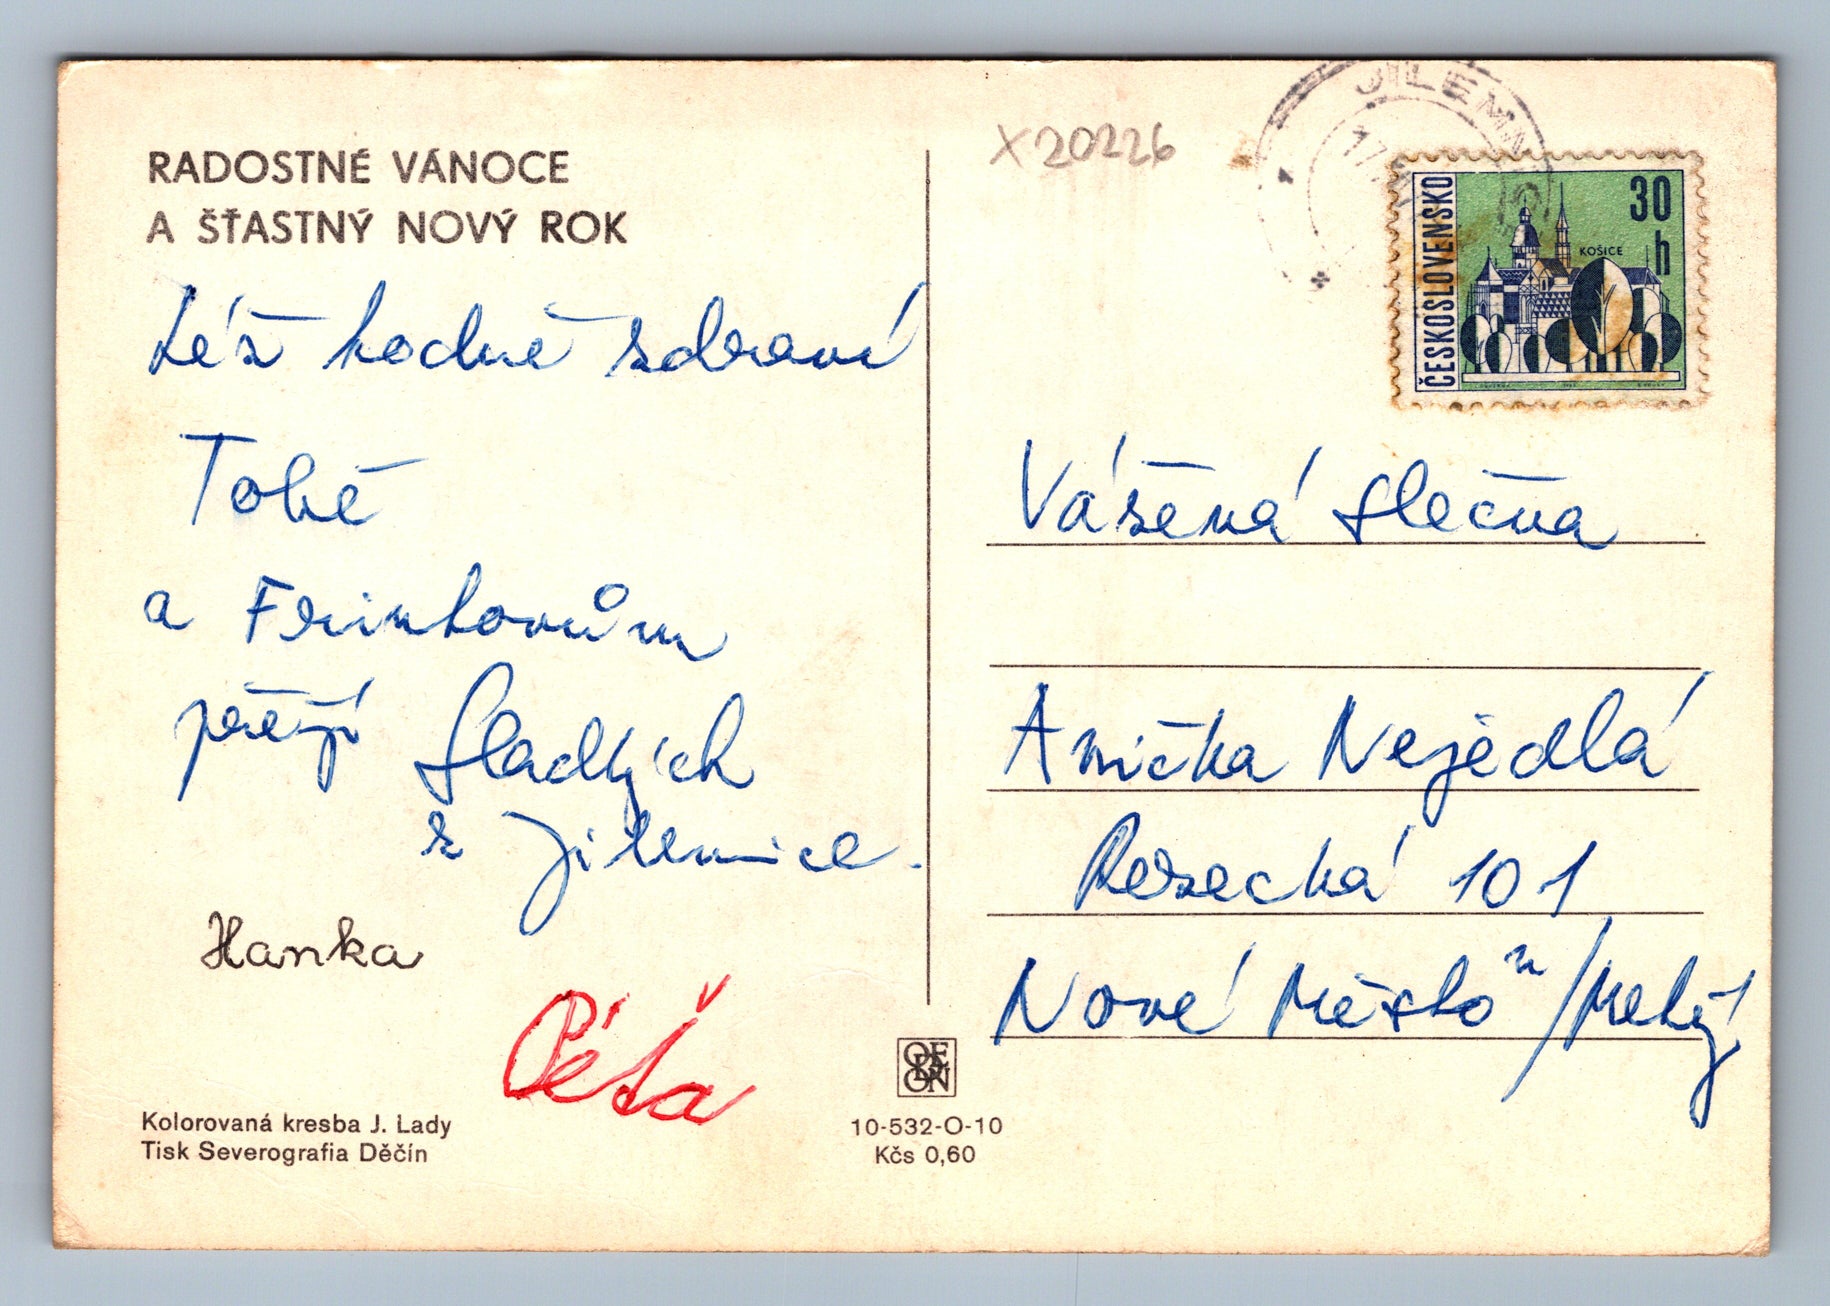 RADOSTNÉ VÁNOCE
A ŠŤASTNÝ NOVÝ ROK
též hodně zdraví
Tobě
a Frintovům
přejí Sladkých
z Jilemnice.
Hanka
Péťa
Kolorovaná kresba J. Lady
Tisk Severografia Děčín
ODEON
10-532-O-10
Kčs 0,60
X 20226
JILEMN
17
ČESKOSLOVENSKO
30
h
KOŠICE
Vážená slečna
Anička Nejedlá
Rezecká 101
Nové Město n/Metují